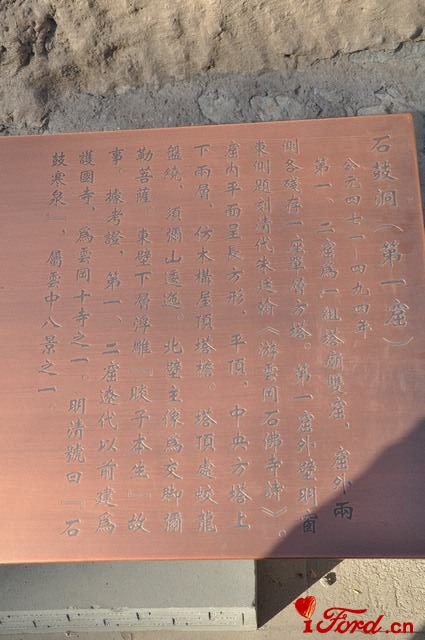 石鼓洞（第一窟）
公元四七一－四九四年
第一、二窟為一組塔廟雙窟，窟外兩
側各殘存一座單層方塔。第一窟外壁明窗
東側題刻清代朱廷翰《游雲岡石佛寺詩》。
窟内平面呈長方形，平頂，中央方塔上
下兩層，仿木構屋頂塔檐。塔頂處蛟龍
盤繞，須彌山逶迤。北壁主像為交脚彌
勒菩薩，東壁下層浮雕『睒子本生』故
事。據考證，第一、二窟遼代以前建為
護國寺，為雲岡十寺之一。明清號曰『石
鼓寒泉』，屬雲中八景之一。
iFord.cn